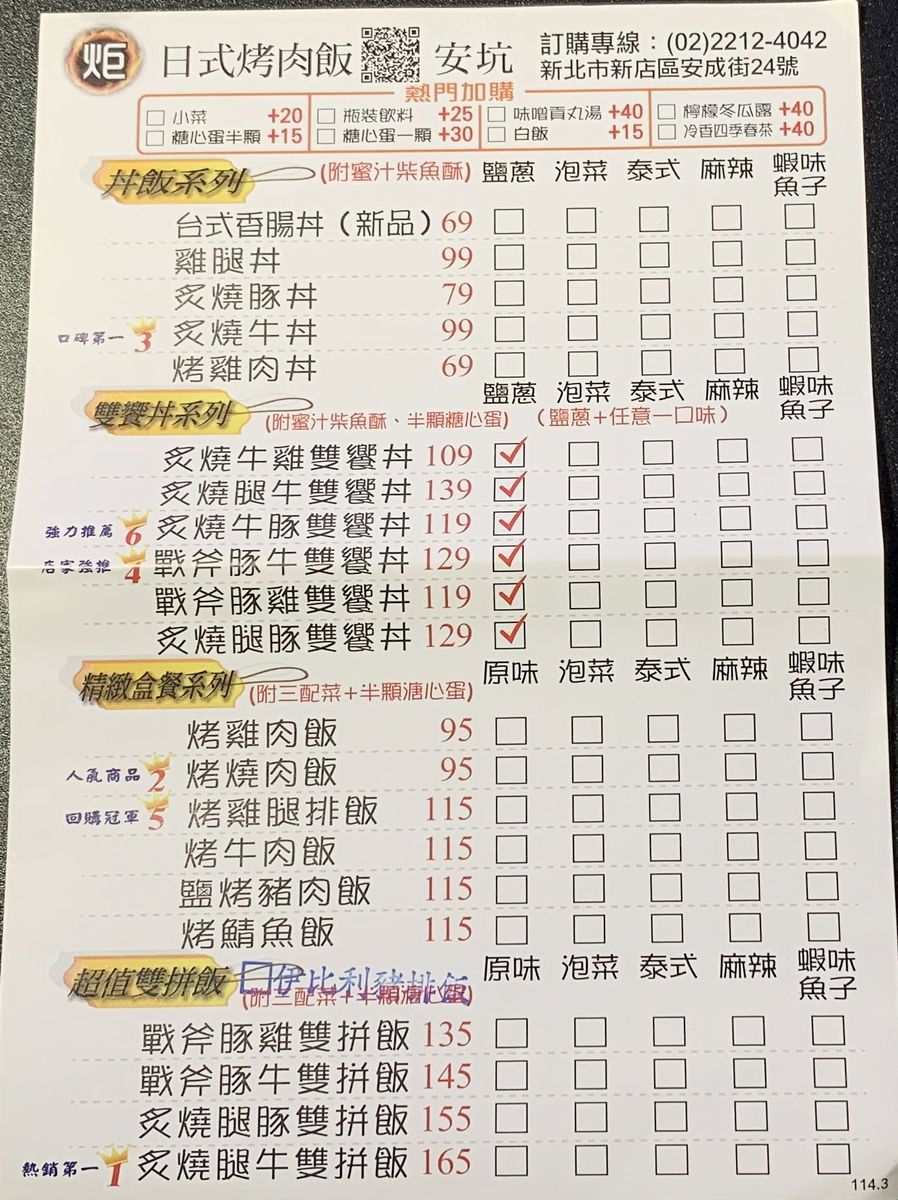 炬 日式烤肉飯 安坑 訂購專線：(02)2212-4042
新北市新店區安成街24號
熱門加購
小菜 +20 瓶裝飲料 +25 味噌貢丸湯 +40 檸檬冬瓜露 +40
糖心蛋半顆 +15 糖心蛋一顆 +30 白飯 +15 冷香四季春茶 +40
丼飯系列 (附蜜汁柴魚酥) 鹽蔥 泡菜 泰式 麻辣 蝦味魚子
台式香腸丼（新品）69
雞腿丼 99
炙燒豚丼 79
口碑第一 3 炙燒牛丼 99
烤雞肉丼 69
雙饗丼系列 (附蜜汁柴魚酥、半顆糖心蛋) （鹽蔥+任意一口味） 鹽蔥 泡菜 泰式 麻辣 蝦味魚子
炙燒牛雞雙饗丼 109
炙燒腿牛雙饗丼 139
強力推薦 6 炙燒牛豚雙饗丼 119
店家強推 4 戰斧豚牛雙饗丼 129
戰斧豚雞雙饗丼 119
炙燒腿豚雙饗丼 129
精緻盒餐系列 (附三配菜+半顆溏心蛋) 原味 泡菜 泰式 麻辣 蝦味魚子
烤雞肉飯 95
人氣商品 2 烤燒肉飯 95
回購冠軍 5 烤雞腿排飯 115
烤牛肉飯 115
鹽烤豬肉飯 115
烤鯖魚飯 115
超值雙拼飯 伊比利豬排飯 原味 泡菜 泰式 麻辣 蝦味魚子
(附三配菜+半顆溏心蛋)
戰斧豚雞雙拼飯 135
戰斧豚牛雙拼飯 145
炙燒腿豚雙拼飯 155
熱銷第一 1 炙燒腿牛雙拼飯 165
114.3